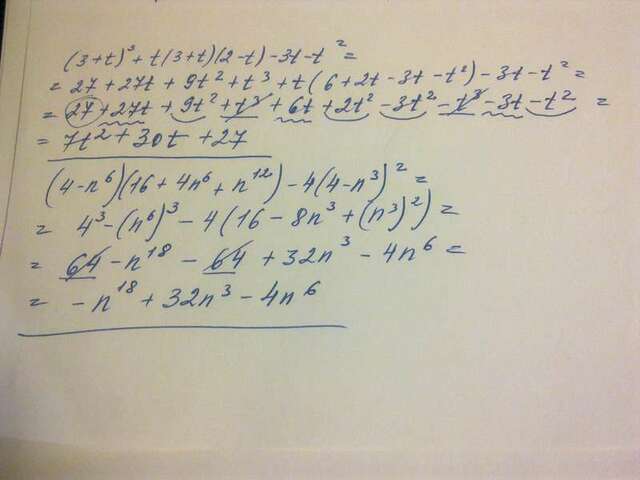 (3+t)³+t(3+t)(2-t)-3t-t²=
=27+27t+9t²+t³+t(6+2t-3t-t²)-3t-t²=
=27+27t+9t²+t³+6t+2t²-3t²-t³-3t-t²=
=7t²+30t+27
(4-n⁶)(16+4n⁶+n¹²)-4(4-n³)²=
=4³-(n⁶)³-4(16-8n³+(n³)²)=
=64-n¹⁸-64+32n³-4n⁶=
=-n¹⁸+32n³-4n⁶